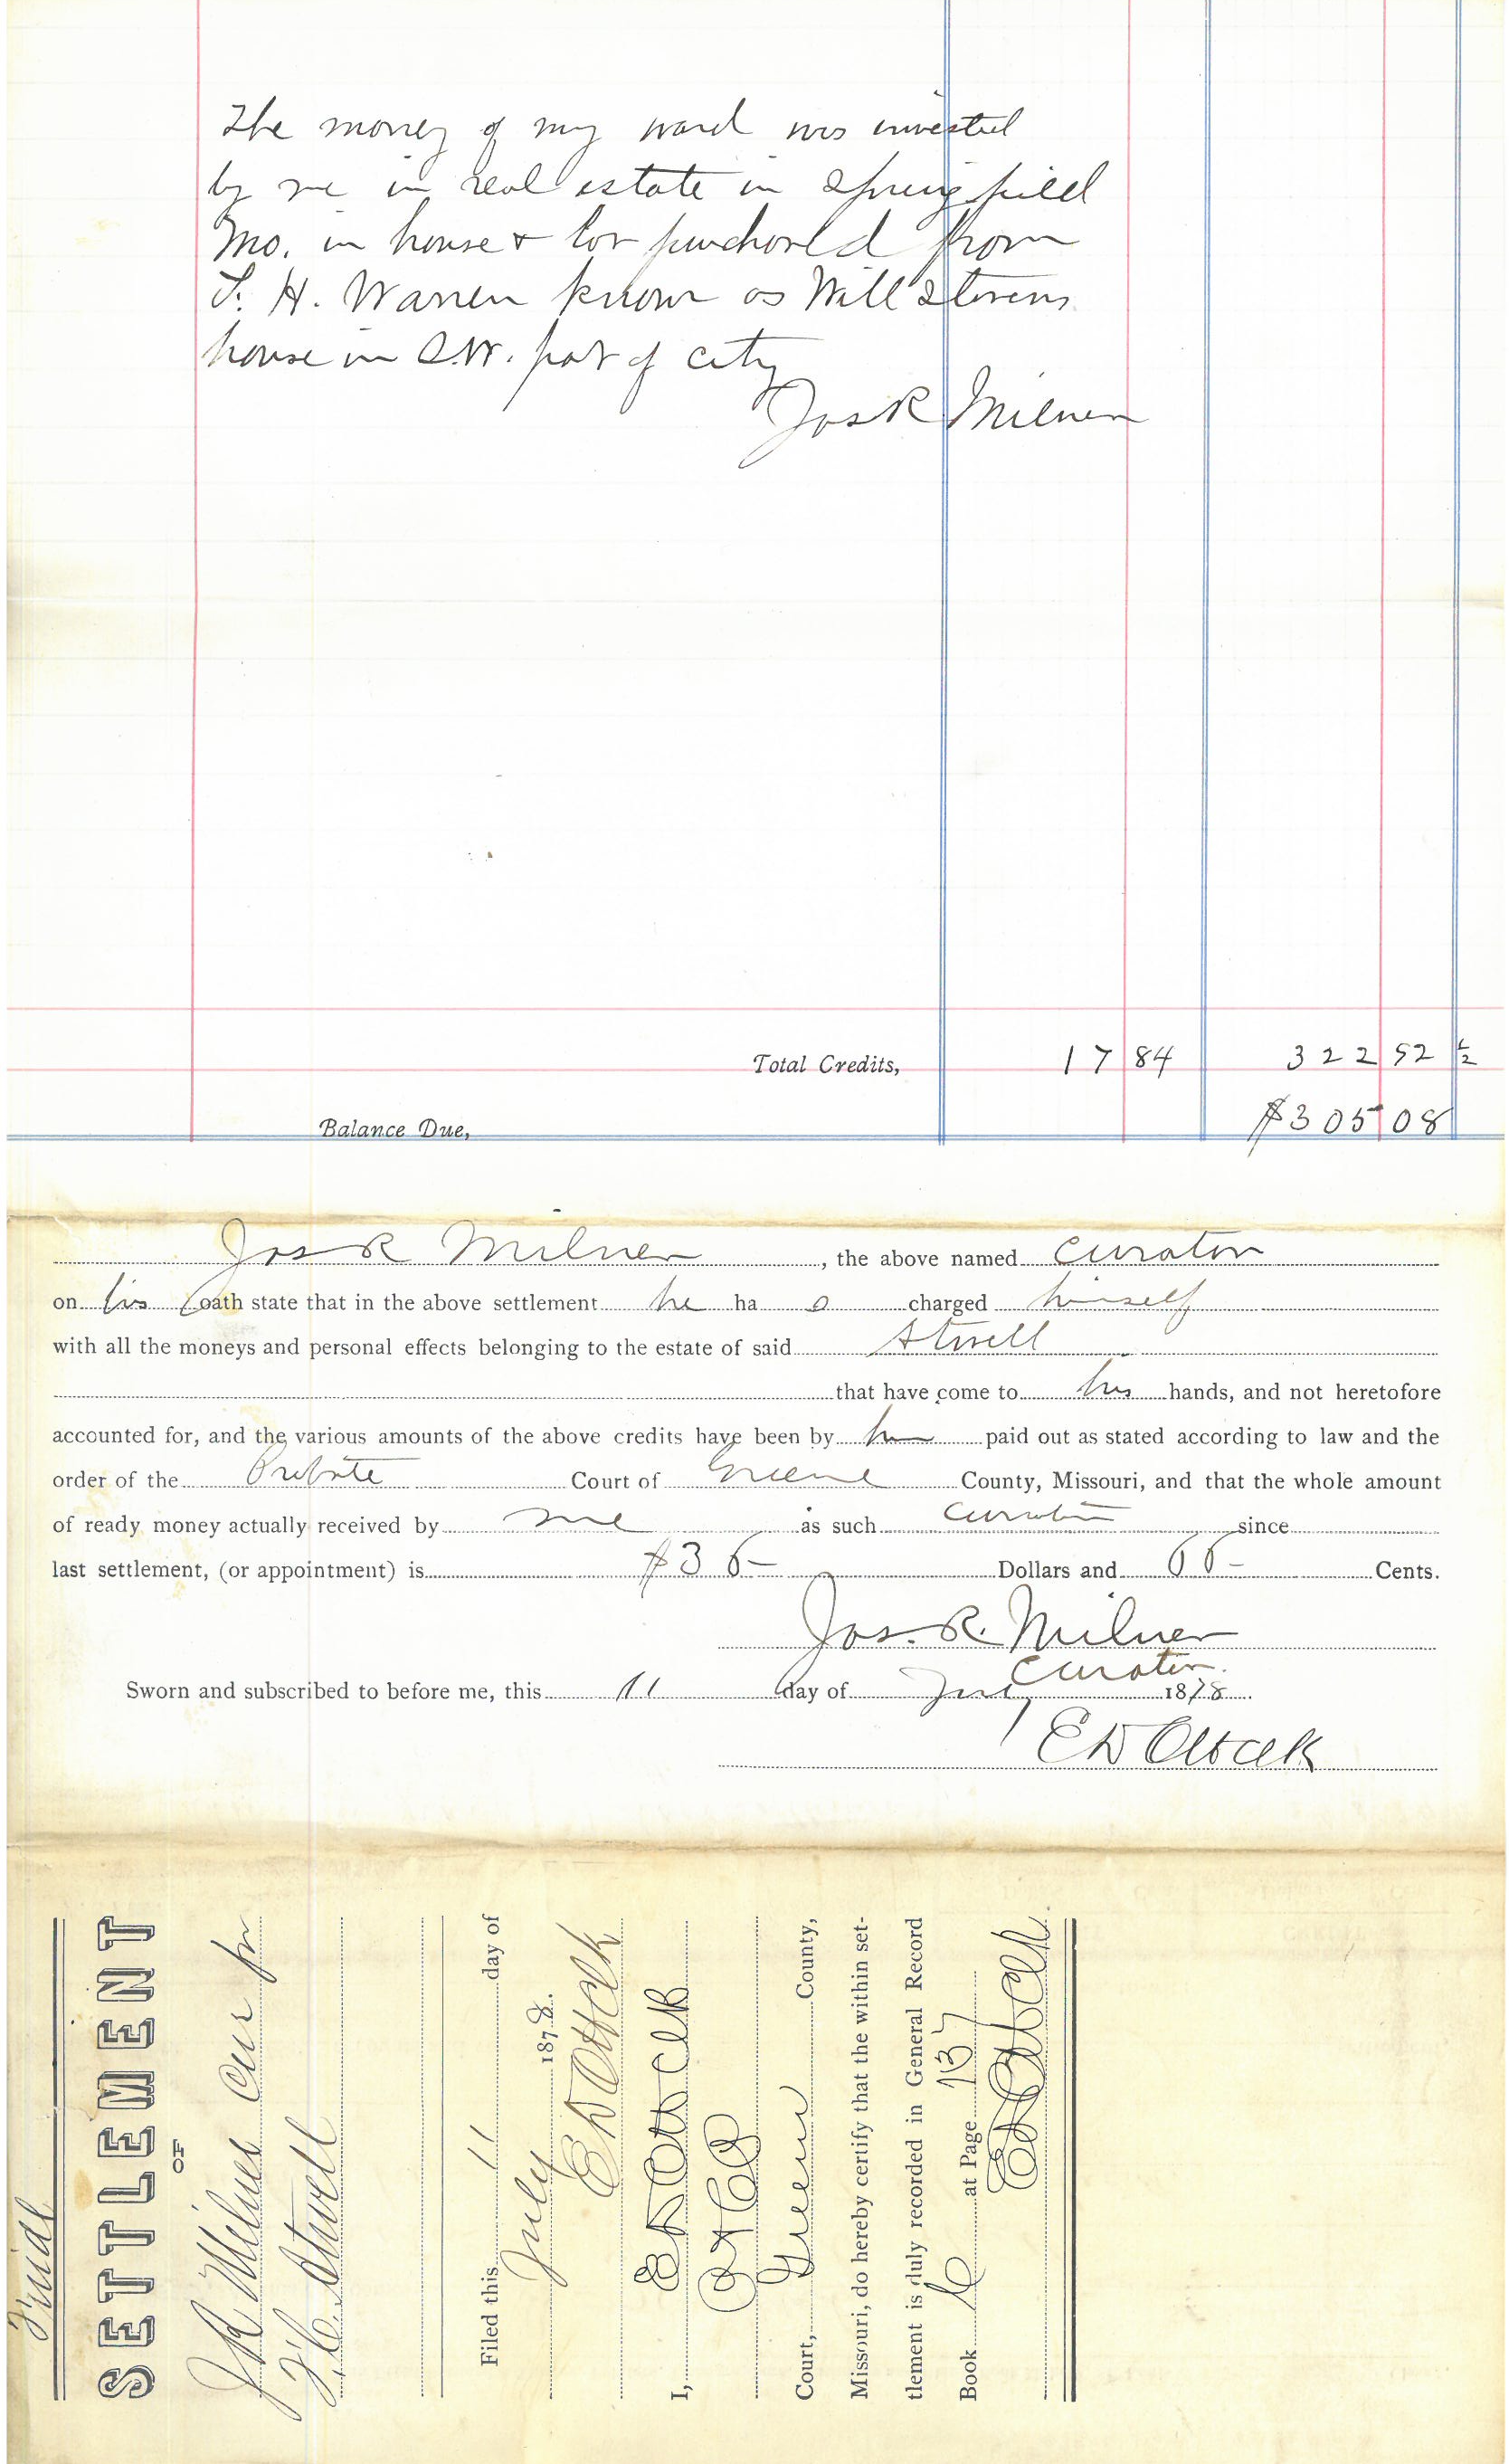 The money of my ward was invested
by me in real estate in Springfield
Mo. in house & lot purchased from
T. H. Warren known as Will Stevens
house in S.W. part of city
Jos R Milner
Total Credits, 17 84 322 52 ½
Balance Due, $305 08
Jos R Milner, the above named curator
on his oath state that in the above settlement he ha s charged himself
with all the moneys and personal effects belonging to the estate of said Atwell
that have come to his hands, and not heretofore
accounted for, and the various amounts of the above credits have been by him paid out as stated according to law and the
order of the Probate Court of Greene County, Missouri, and that the whole amount
of ready money actually received by me as such curator since
last settlement, (or appointment) is $36 Dollars and Cents.
Jos. R. Milner
Curator.
Sworn and subscribed to before me, this 11 day of July 1878
E D Ott Clk
Final
SETTLEMENT
OF
J R Milner Cur for
Atwell
Filed this 11 day of
July 1878.
E D Ott Clk
I, E D Ott Clk
Court, Greene County,
Missouri, do hereby certify that the within set-
tlement is duly recorded in General Record
Book at Page 137
E D Ott Clk